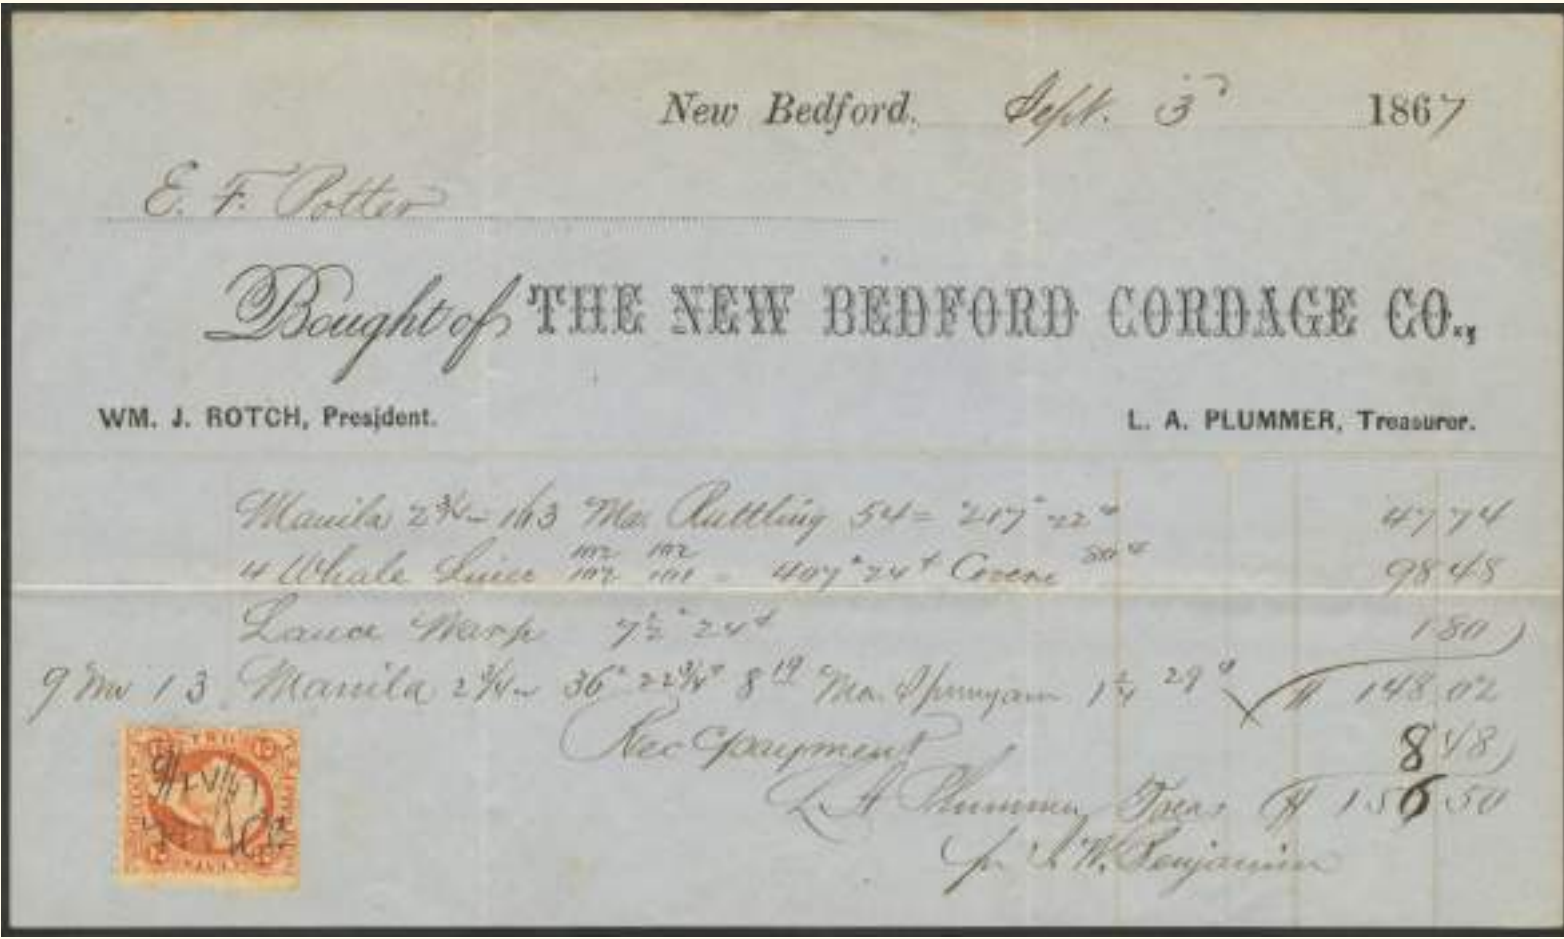 New Bedford, Sept. 3d 1867
E. F. Potter
Bought of THE NEW BEDFORD CORDAGE CO.,
WM. J. ROTCH, President. L. A. PLUMMER, Treasurer.
Manila 2 3/4 - 163 Ma. Rattling 54 = 217 22 47 74
4 Whale Lines 102 102 407 24 Covers 80 98 48
102 101
Lance Warp 7 1/2 24 1 80
9 Mo 13 Manila 2 3/4 36 22 3/4 8 Ma. Spunyarn 1 1/4 29 $ 148 02
Rec payment 8 48
L. A. Plummer Treas $ 156 50
pr W. Benjamin